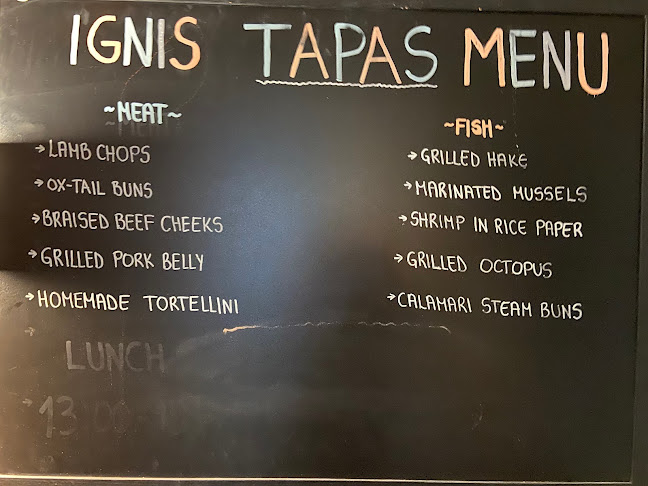 IGNIS TAPAS MENU
~MEAT~
→LAMB CHOPS
→OX-TAIL BUNS
→BRAISED BEEF CHEEKS
→GRILLED PORK BELLY
→HOMEMADE TORTELLINI
~FISH~
→GRILLED HAKE
→MARINATED MUSSELS
→SHRIMP IN RICE PAPER
→GRILLED OCTOPUS
→CALAMARI STEAM BUNS
LUNCH